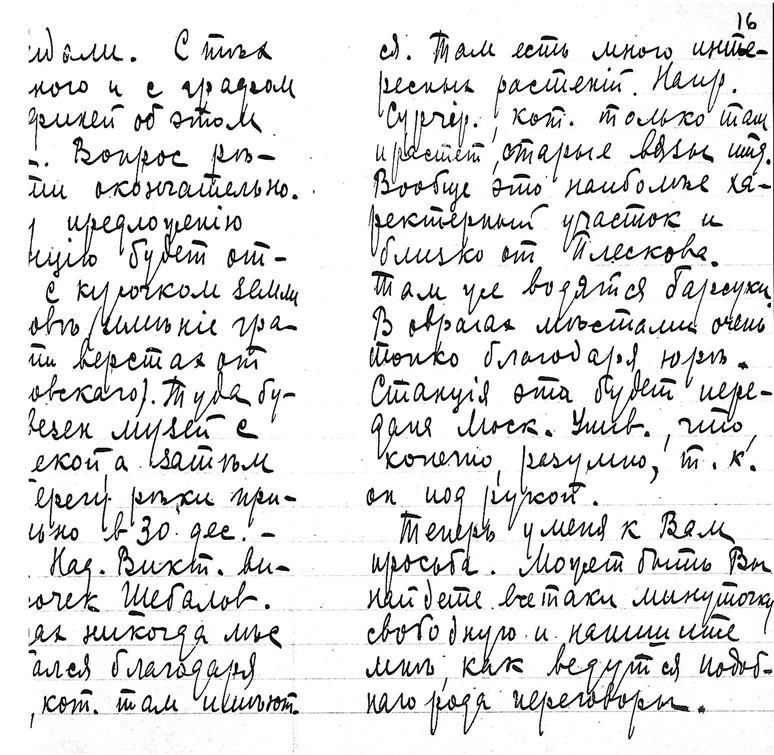 16
идали. С тѣх
ного и с градом
финей об этом
Вопрос рѣ-
ти окончательно.
предложенію
нцію будет от-
с курочком земли
овъ (имѣніе гра-
ти верстах от
овскаго). Туда бу-
везен музей с
екой, а затѣм
берегу рѣки при-
ьно в 30 дес. –
Над. Викт. ви-
очек Шебалов.
ах никогда мѣс
ался благодаря
, кот. там имѣют.
ся. Там есть много инте-
ресных растеній. Напр.
Сурчер., кот. только там
и растет, старые вязы итд.
Вообще это наиболѣе ха-
рактерный участок и
близко от Плескова.
Там уже водятся барсуки.
В оврагах мѣстами очень
топко благодаря юрѣ.
Станція эта будет пере-
дана Моск. Унив., что,
конечно, разумно, т. к.
он под рукой.
Теперь у меня к Вам
просьба. Может быть Вы
найдете всетаки минуточку
свободную и напишите
мнѣ, как ведутся подоб-
наго рода переговоры.